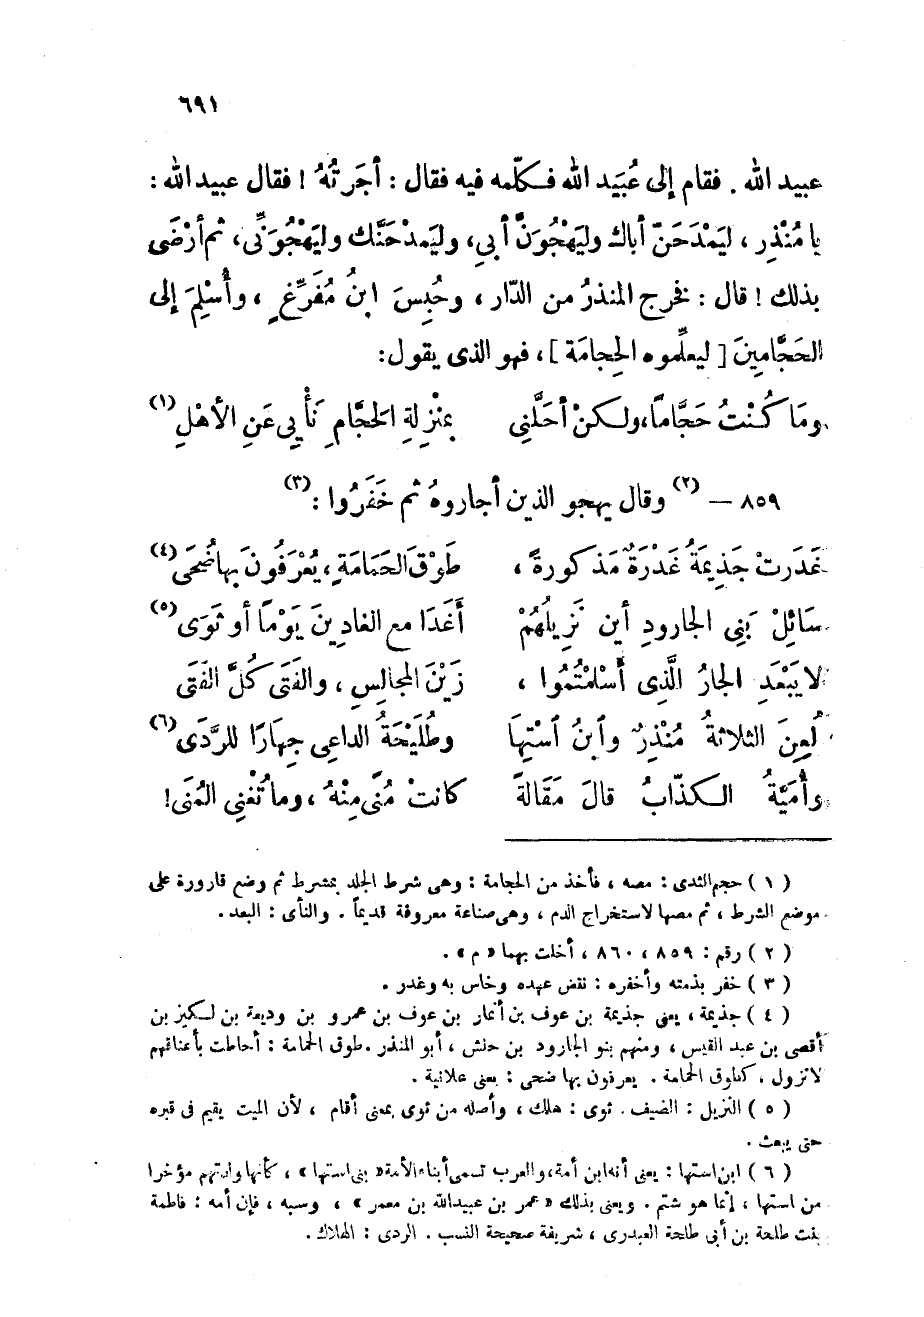 ٦٩١
عبيد الله . فقام إلى عُبَيد الله فكلّمه فيه فقال : أجَرتُهُ ! فقال عبيد الله :
يا مُنْذِر ، ليَمْدَحَنّ أباك وليَهْجُوَنَّ أبي ، وليَمدْحَنَّك وليَهْجُوَنِّى ، ثم أرْضَى
بذلك ! قال : فخرج المنذرُ من الدّار ، وحُبِسَ ابنُ مُفَرِّغٍ ، وأُسْلِمَ إلى
الحَجَّامِينَ [ ليعلِّموه الحِجامَة ] ، فهو الذى يقول :
وما كُنْتُ حَجَّامًا ، ولكنْ أحَلَّنِى بمَنْزِلةِ الحَجَّامِ نَأْيِى عَنِ الأهْلِ (١)
٨٥٩ – (٢) وقال يهجو الذين أجاروهُ ثم خَفَرُوا (٣) :
غَدَرتْ جَذِيمَةُ غَدْرَةً مَذكورةً ، طَوْقَ الحَمَامَةِ ، يُعْرَفُونَ بها ضُحَى (٤)
سَائِلْ بَنِى الجارودِ أين نَزِيلُهُمْ أَغَدَا مع الغادِينَ يَوْمًا أو ثَوَى (٥)
لا يَبْعَدِ الجارُ الَّذِى أسْلَمْتُمُوا ، زَيْنَ المجالِسِ ، والفَتَى كُلَّ الفَتَى
لُعِنَ الثلاثةُ مُنْذِرٌ وابنُ اسْتِهَا وطُلَيْحَةُ الداعِى جِهَارًا للرَّدَى (٦)
وأُمَيّةُ الكذّابُ قالَ مَقَالةً كانتْ مُنًى مِنْهُ ، وما تُغْنِى المُنَى !
( ١ ) حجم الثدى : مصه ، فأخذ من الحجامة : وهى شرط الجلد بمشرط ثم وضع قارورة على
موضع الشرط ، ثم مصها لاستخراج الدم ، وهى صناعة معروفة قديماً . والنأى : البعد .
( ٢ ) رقم : ٨٥٩ ، ٨٦٠ ، أخلت بهما « م » .
( ٣ ) خفر بذمته وأخفره : نقض عهده وخاس به وغدر .
( ٤ ) جذيمة ، يعنى جذيمة بن عوف بن أنمار بن عوف بن عمرو بن وديعة بن لكيز بن
أفصى بن عبد القيس ، ومنهم بنو الجارود بن حنش ، أبو المنذر . طوق الحمامة : أحاطت بأعناقهم
لا تزول ، كطوق الحمامة . يعرفون بها ضحى : يعنى علانية .
( ٥ ) النزيل : الضيف . ثوى : هلك ، وأصله من ثوى بمعنى أقام ، لأن الميت يقيم فى قبره
حتى يبعث .
( ٦ ) ابن استها : يعنى أنه ابن أمة ، والعرب تسمى أبناء الأمة « بنى استها » ، كأنها ولدتهم مؤخرا
من استها ، إنما هو شتم . ويعنى بذلك « عمر بن عبيد الله بن معمر » ، وسبه ، فإن أمه : فاطمة
بنت طلحة بن أبى طلحة العبدرى ، شريفة صحيحة النسب . الردى : الهلاك .